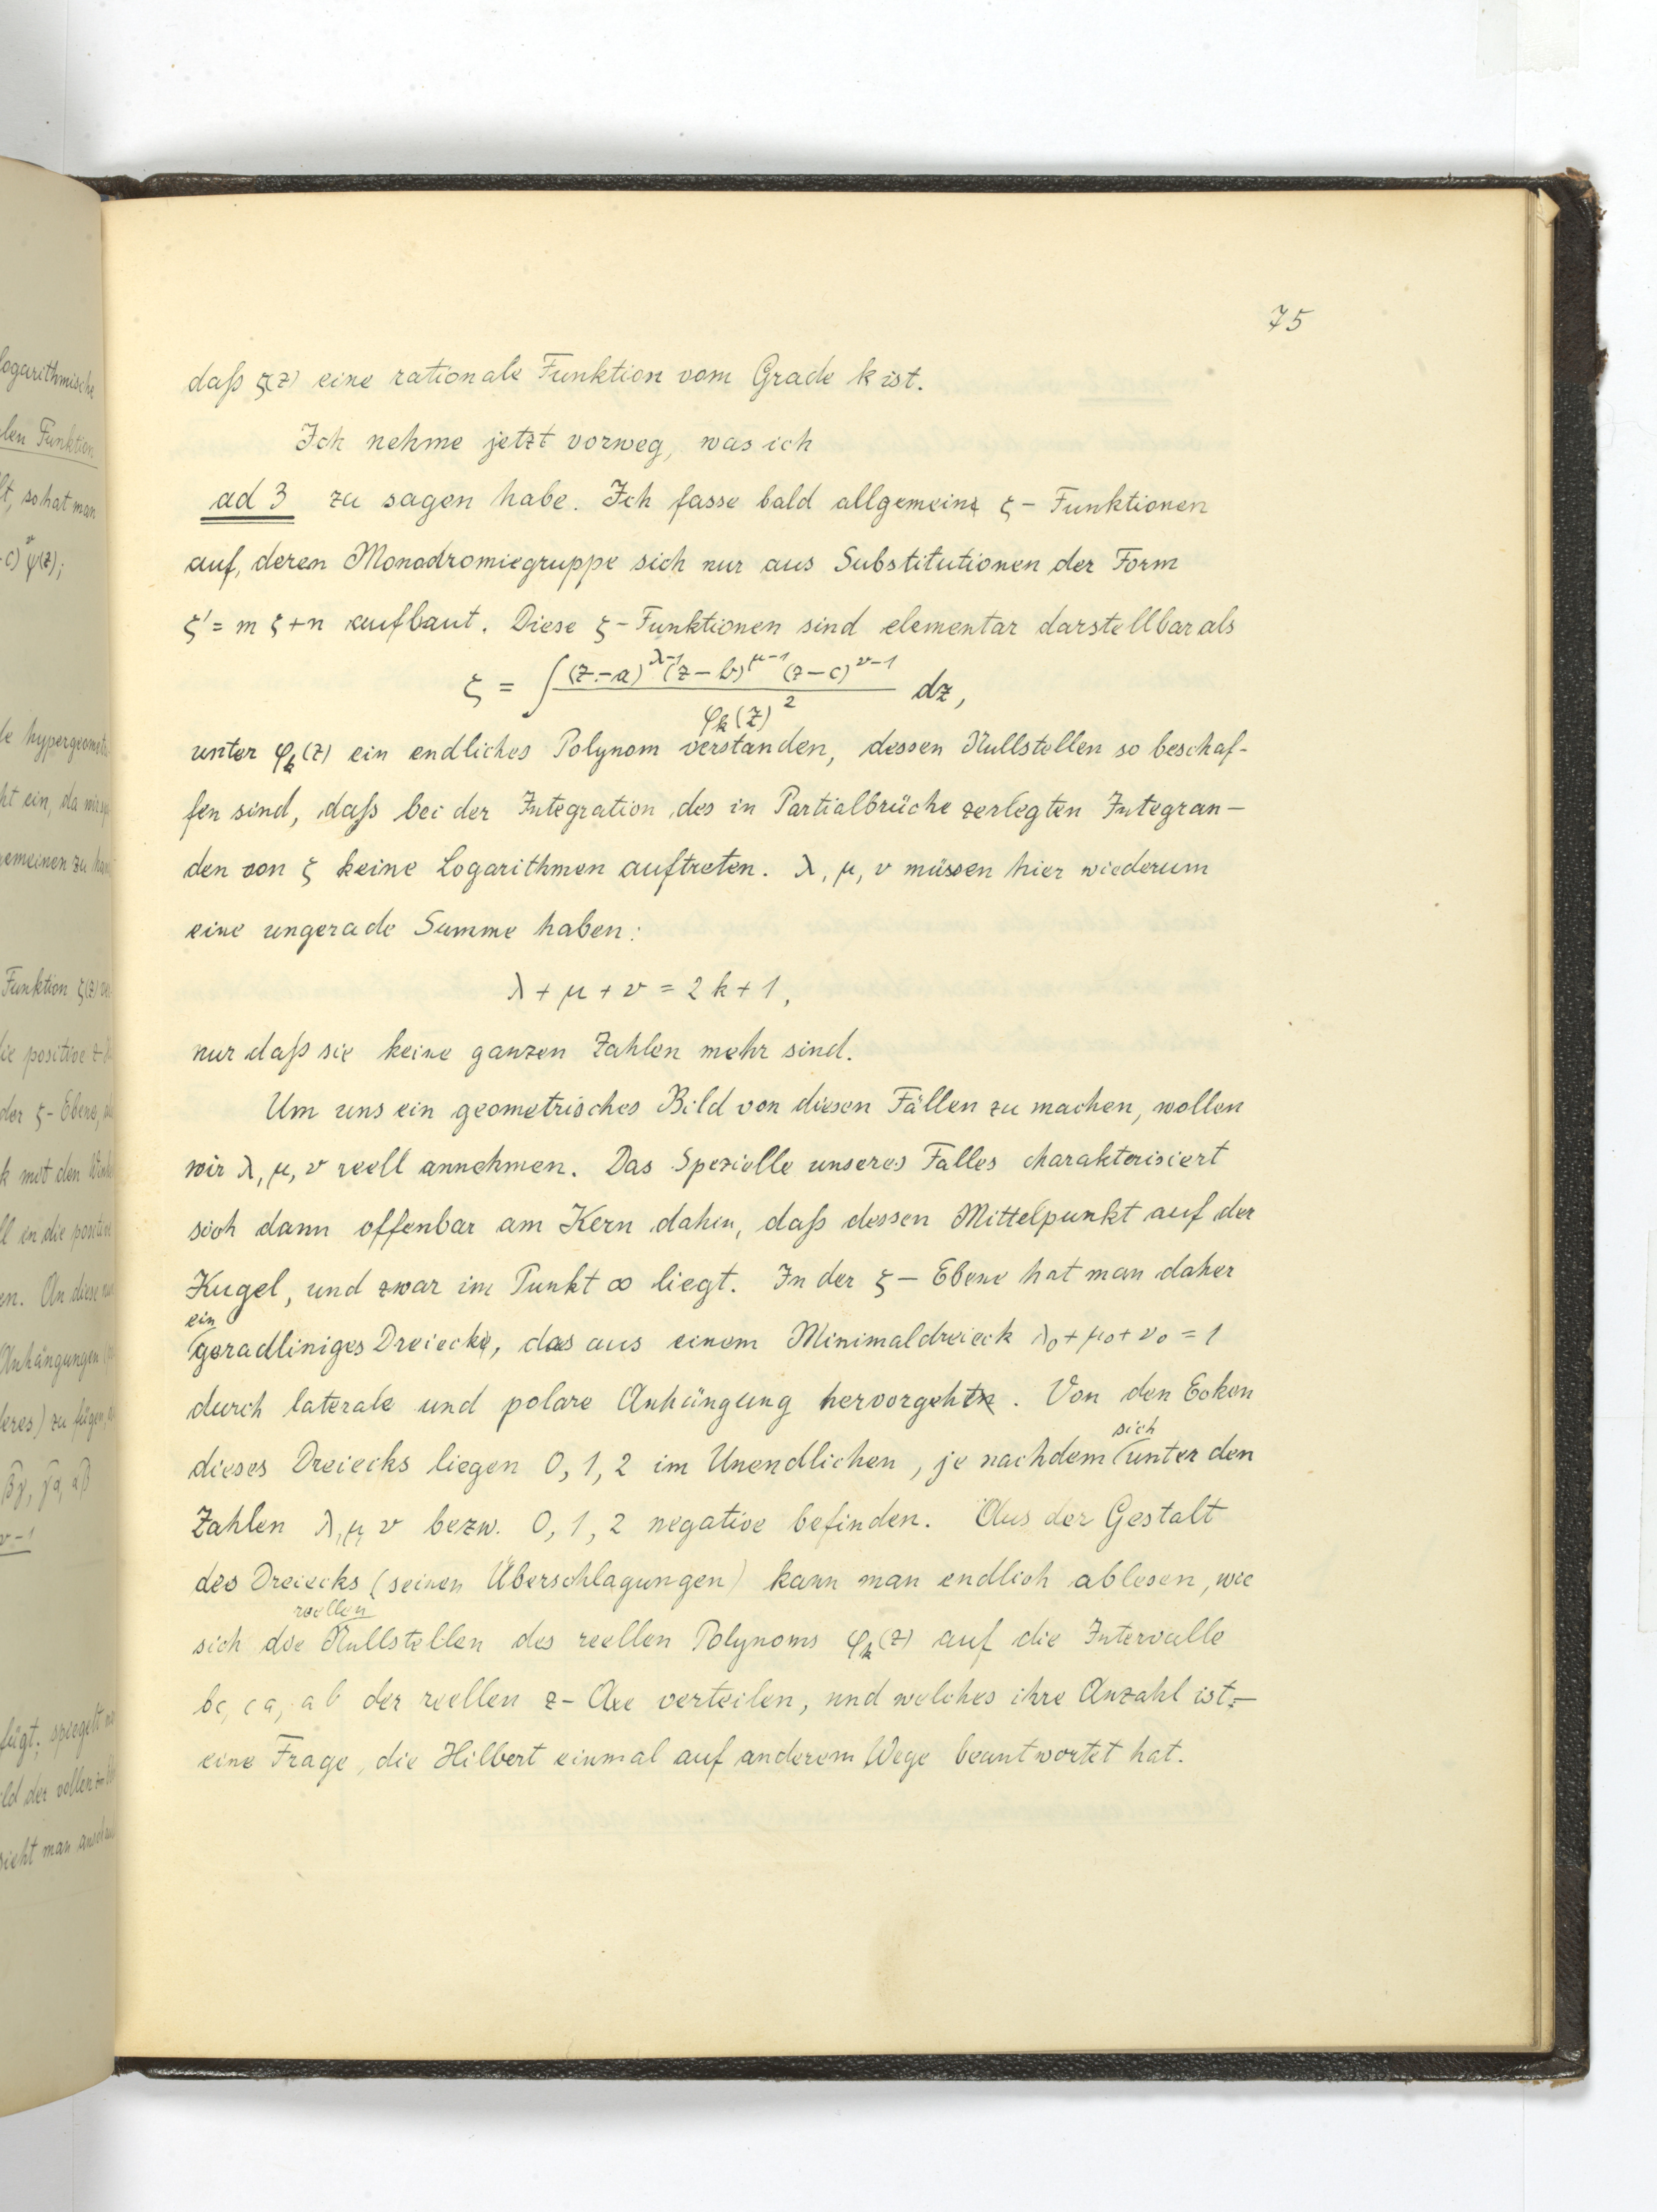 logarithmische
len Funktion
lt, so hat man
-c)^ν φ(z);
le hypergeomet
ht ein, da wir
gemeinen zu
Funktion ζ(z)
die positive z-
der ζ-Ebene,
k mit den
ll en die positive
en. An diese
Anhängungen
eres) zu fügen,
βγ, γα, αβ
ν-1
fügt; spiegelt
ld der vollen
sieht man
75
daß ζ(z) eine rationale Funktion vom Grade k ist.
Ich nehme jetzt vorweg, was ich
ad 3 zu sagen habe. Ich fasse bald allgemeine ζ-Funktionen
auf, deren Monodromiegruppe sich nur aus Substitutionen der Form
ζ' = m ζ+n aufbaut. Diese ζ-Funktionen sind elementar darstellbar als
ζ = ∫ (z-a)^{λ-1} (z-b)^{μ-1} (z-c)^{ν-1} / φ_k(z)^2 dz,
unter φ_k(z) ein endliches Polynom verstanden, dessen Nullstellen so beschaf-
fen sind, daß bei der Integration des in Partialbrüche zerlegten Integran-
den von ζ keine Logarithmen auftreten. λ, μ, ν müssen hier wiederum
eine ungerade Summe haben:
λ + μ + ν = 2k + 1,
nur daß sie keine ganzen Zahlen mehr sind.
Um uns ein geometrisches Bild von diesen Fällen zu machen, wollen
wir λ, μ, ν reell annehmen. Das Spezielle unseres Falles charakterisiert
sich dann offenbar am Kern dahin, daß dessen Mittelpunkt auf der
Kugel, und zwar im Punkt ∞ liegt. In der ζ-Ebene hat man daher
ein
geradliniges Dreieck, das aus einem Minimaldreieck λ₀+μ₀+ν₀ = 1
durch laterale und polare Anhängung hervorgeht. Von den Ecken
sich
dieses Dreiecks liegen 0, 1, 2 im Unendlichen, je nachdem unter den
Zahlen λ, μ, ν bezw. 0, 1, 2 negative befinden. Aus der Gestalt
des Dreiecks (seinen Überschlagungen) kann man endlich ablesen, wie
reellen
sich die Nullstellen des reellen Polynoms φ_k(z) auf die Intervalle
bc, ca, ab der reellen z-Axe verteilen, und welches ihre Anzahl ist-
eine Frage, die Hilbert einmal auf anderem Wege beantwortet hat.